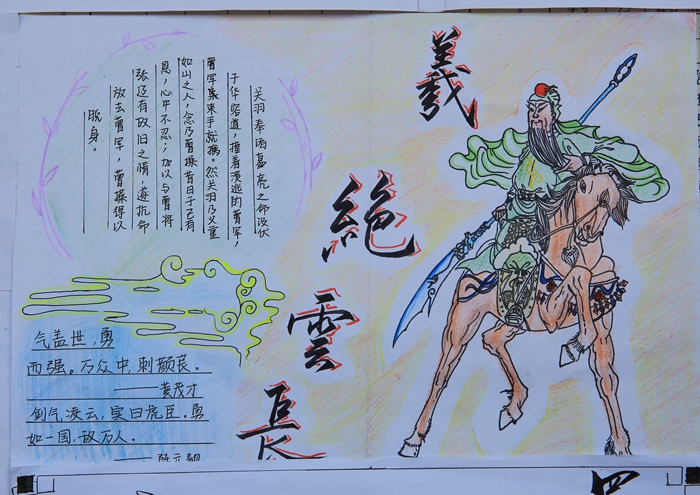 義
絕
雲
長
关羽奉诸葛亮之命设伏
于华容道,撞着溃逃的曹军,
曹军束手就擒。然关羽乃义重
如山之人,念及曹操昔日于己有
恩,心中不忍,加以与曹将
张辽有故旧之情,遂抗命
放去曹军,曹操得以
脱身。
气盖世,勇
而强。万众中,刺颜良。
——黄茂才
剑气凌云,实曰虎臣。勇
如一国,敌万人。
——陈元靓